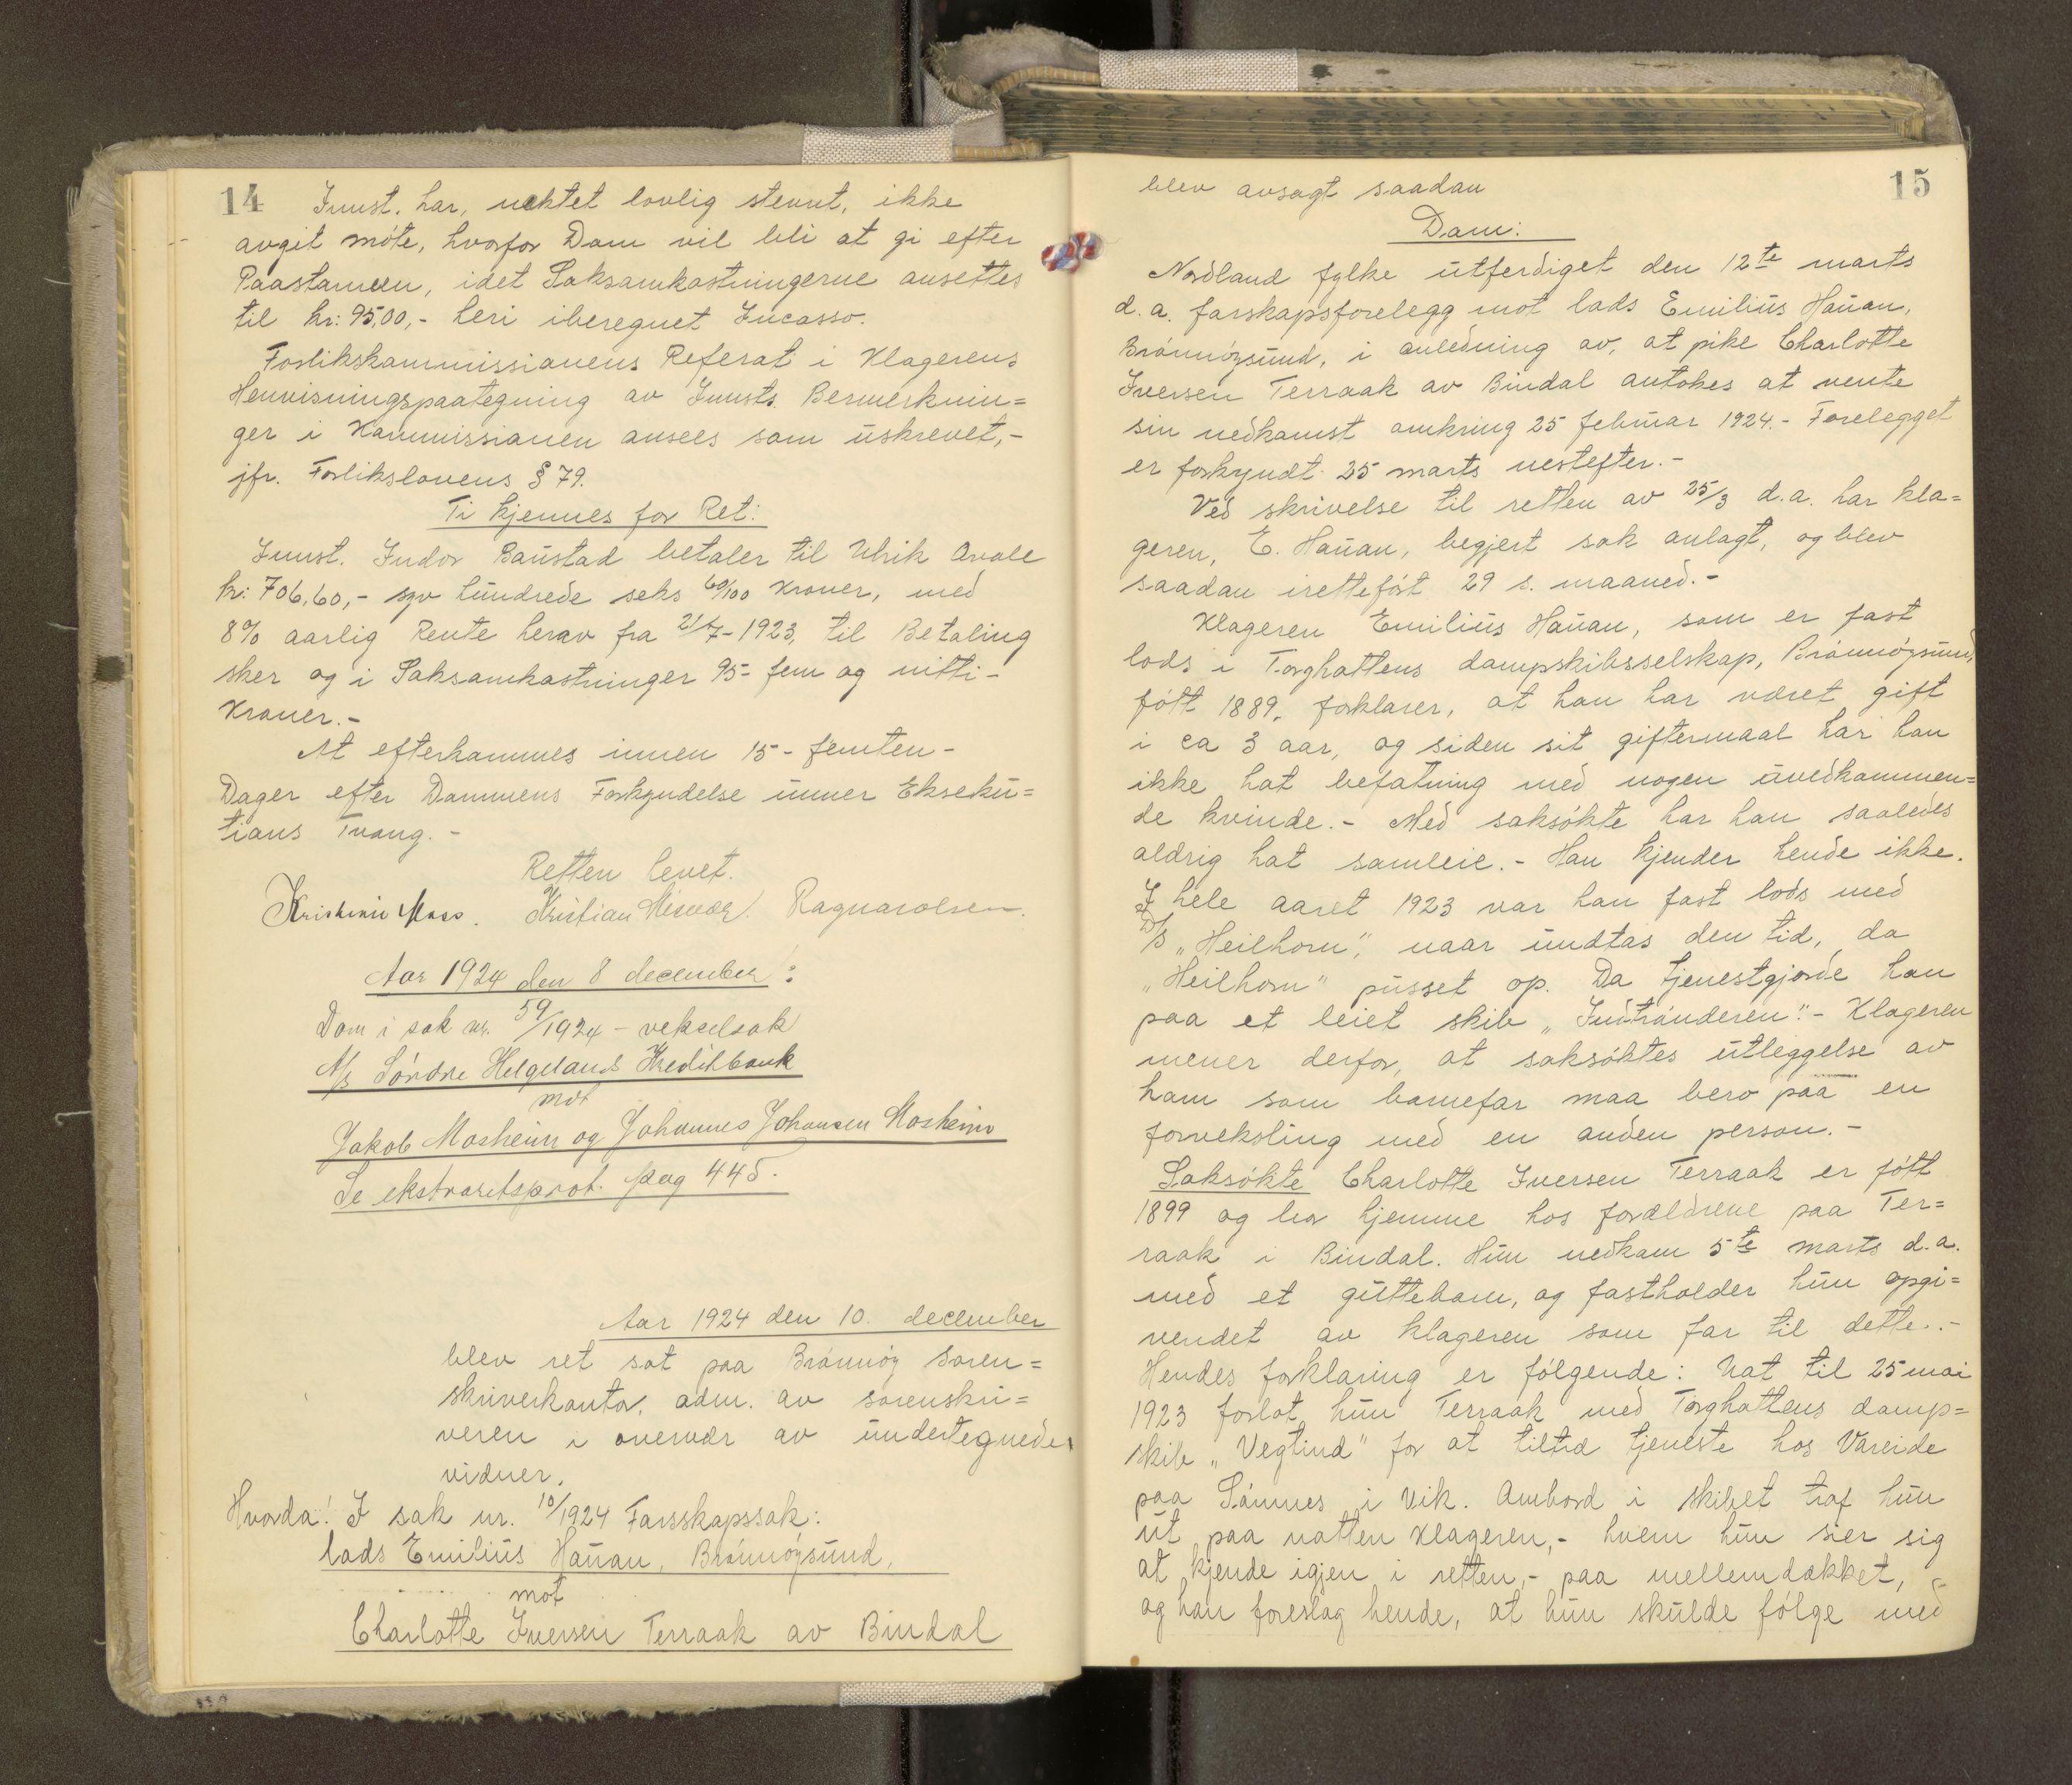 14 Innst. har, uaktet lovlig stevnt, ikke
avgit møte, hvorfor Dom vil bli at gi efter
Paastanden, idet Saksomkostningerne ansettes
til kr: 95,00,- heri iberegnet Incasso.
Forlikskommissionens Referat i Klagerens
Henvisningspaategning av Innsts. Bemerknin=
ger i Kommissionen ansees som uskrevet,-
jfr. Forlikslovens § 79.
Ti kjennes for Ret:
Innst. Indor Baustad betaler til Ulrik Kvale
kr: 706,60,- syv hundrede seks 60/100 Kroner, med
8% aarlig Rente herav fra 21/7-1923, til Betaling
sker og i Saksomkostninger 95- fem og nitti-
Kroner.-
At efterkommes innen 15- femten-
Dager efter Dommens Forkyndelse unner Ekseku=
tions Tvang.-
Retten hevet.
Kristian Moss. Kristian Risvær. Ragnar Olsen.
Aar 1924 den 8 december:
Dom i sak nr. 59/1924 - vekselsak
A/s Søndre Helgelands Kreditbank
mot
Jakob Mosheim og Johannes Johansen Mosheim
Se ekstraretsprot. pag 445.
Aar 1924 den 10. december
blev ret sat paa Brønnøy soren=
skriverkontor, adm. av sorenskri=
veren i overvær av undertegnede
vidner.
Hvorda! I sak nr. 10/1924 Farsskapssak:
lods Emilius Hauan, Brønnøysund,
mot
Charlotte Iversen Terraak av Bindal
15
blev avsagt saadan
Dom:
Nordland fylke utferdiget den 12te marts
d.a. farskapsforelegg mot lods Emilius Hauan,
Brønnøysund, i anledning av, at pike Charlotte
Iversen Terraak av Bindal antokes at vente
sin nedkomst omkring 25 februar 1924.- Forelegget
er forkyndt 25 marts nestefter.-
Ved skrivelse til retten av 25/3 d.a. har kla=
geren, E. Hauan, begjert sak anlagt, og blev
saadan iretteført 29 s. maaned.-
Klageren Emilius Hauan, som er fast
lods i Torghattens dampskibsselskap, Brønnøysund,
født 1889, forklarer, at han har været gift
i ca 3 aar, og siden sit giftermaal har han
ikke hat befatning med nogen uvedkommen=
de kvinde.- Med saksøkte har han saaledes
aldrig hat samleie.- Han kjender hende ikke.
I hele aaret 1923 var han fast lods med
D/S "Heilhorn", naar undtas den tid, da
"Heilhorn" pusset op. Da tjenestgjorde han
paa et leiet skib "Indtrønderen".- Klageren
mener derfor, at saksøktes utleggelse av
ham som barnefar maa bero paa en
forveksling med en anden person.-
Saksøkte Charlotte Iversen Terraak er født
1899 og bor hjemme hos forældrene paa Ter=
raak i Bindal. Hun nedkom 5te marts d.a.
med et guttebarn, og fastholder hun opgi=
vendet av klageren som far til dette.-
Hendes forklaring er følgende: Nat til 25 mai
1923 forlot hun Terraak med Torghattens damp=
skib "Vegtind" for at tiltræ tjeneste hos Vareide
paa Sømnes i Vik. Ombord i skibet traf hun
ut paa natten klageren,- hvem hun sier sig
at kjende igjen i retten,- paa mellemdækket,
og han foreslog hende, at hun skulde følge med